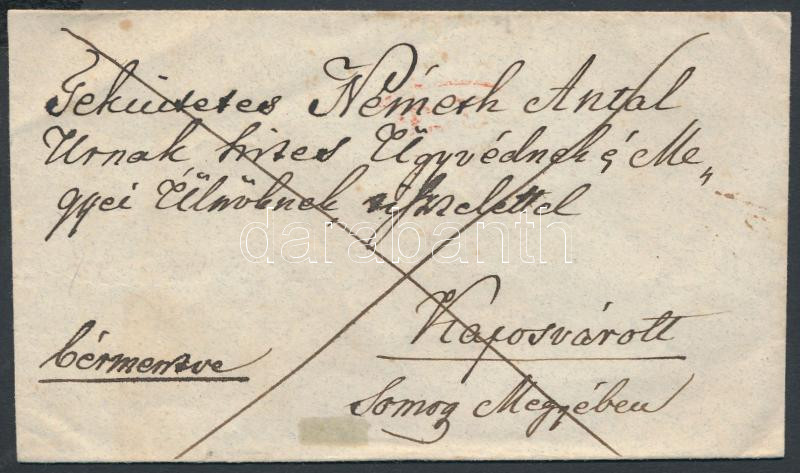 Tekintetes Németh Antal
Urnak hites Ügyvédnek és Me„
gyei Ülnöknek tisztelettel
Kaposvárott
bérmentve
Somogy Megyében
darabanth